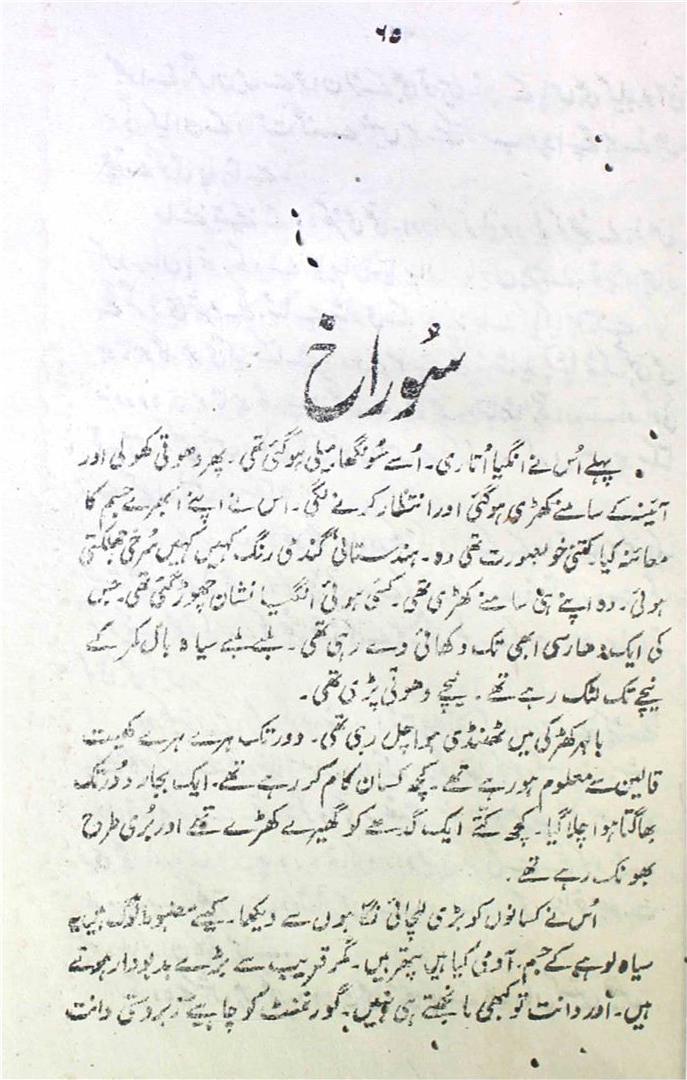 ۹۵
سُوراخ
پہلے اُس نے انگیا اُتاری۔ اُسے سُونگھا۔ میلی ہوگئی تھی۔ پھر دھوتی کھولی اور
آئینہ کے سامنے کھڑی ہوگئی اور انتظار کرنے لگی۔ اس نے اپنے ابھرے جسم کا
معائنہ کیا۔ کتنی خوبصورت تھی وہ۔ ہندستانی گندمی رنگ کہیں کہیں سُرخی جھلکتی
ہوئی۔ وہ اپنے ہی سامنے کھڑی تھی۔ کسی ہوئی انگیا نشان چھوڑ گئی تھی۔ جس
کی ایک دھار سی ابھی تک دکھائی دے رہی تھی۔ لمبے لمبے سیاہ بال کمر کے
نیچے تک لٹک رہے تھے۔ نیچے دھوتی پڑی تھی۔
باہر کھڑکی میں ٹھنڈی ہوا چل رہی تھی۔ دور تک ہرے ہرے کھیت
قالین سے معلوم ہو رہے تھے۔ کچھ کسان کام کر رہے تھے۔ ایک بجار دُور تک
بھاگتا ہوا چلا گیا۔ کچھ کتّے ایک گدھے کو گھیرے کھڑے تھے اور بُری طرح
بھونک رہے تھے۔
اُس نے کسانوں کو بڑی للچائی نگاہوں سے دیکھا۔ کیسے مضبوط لوگ ہیں یہ
سیاہ لوہے کے جسم۔ آدمی کیا ہیں پتھر ہیں۔ مگر قریب سے بڑے بدبودار ہوتے
ہیں۔ اور دانت تو کبھی مانجھتے ہی نہیں۔ گورنمنٹ کو چاہیے زبردستی دانت